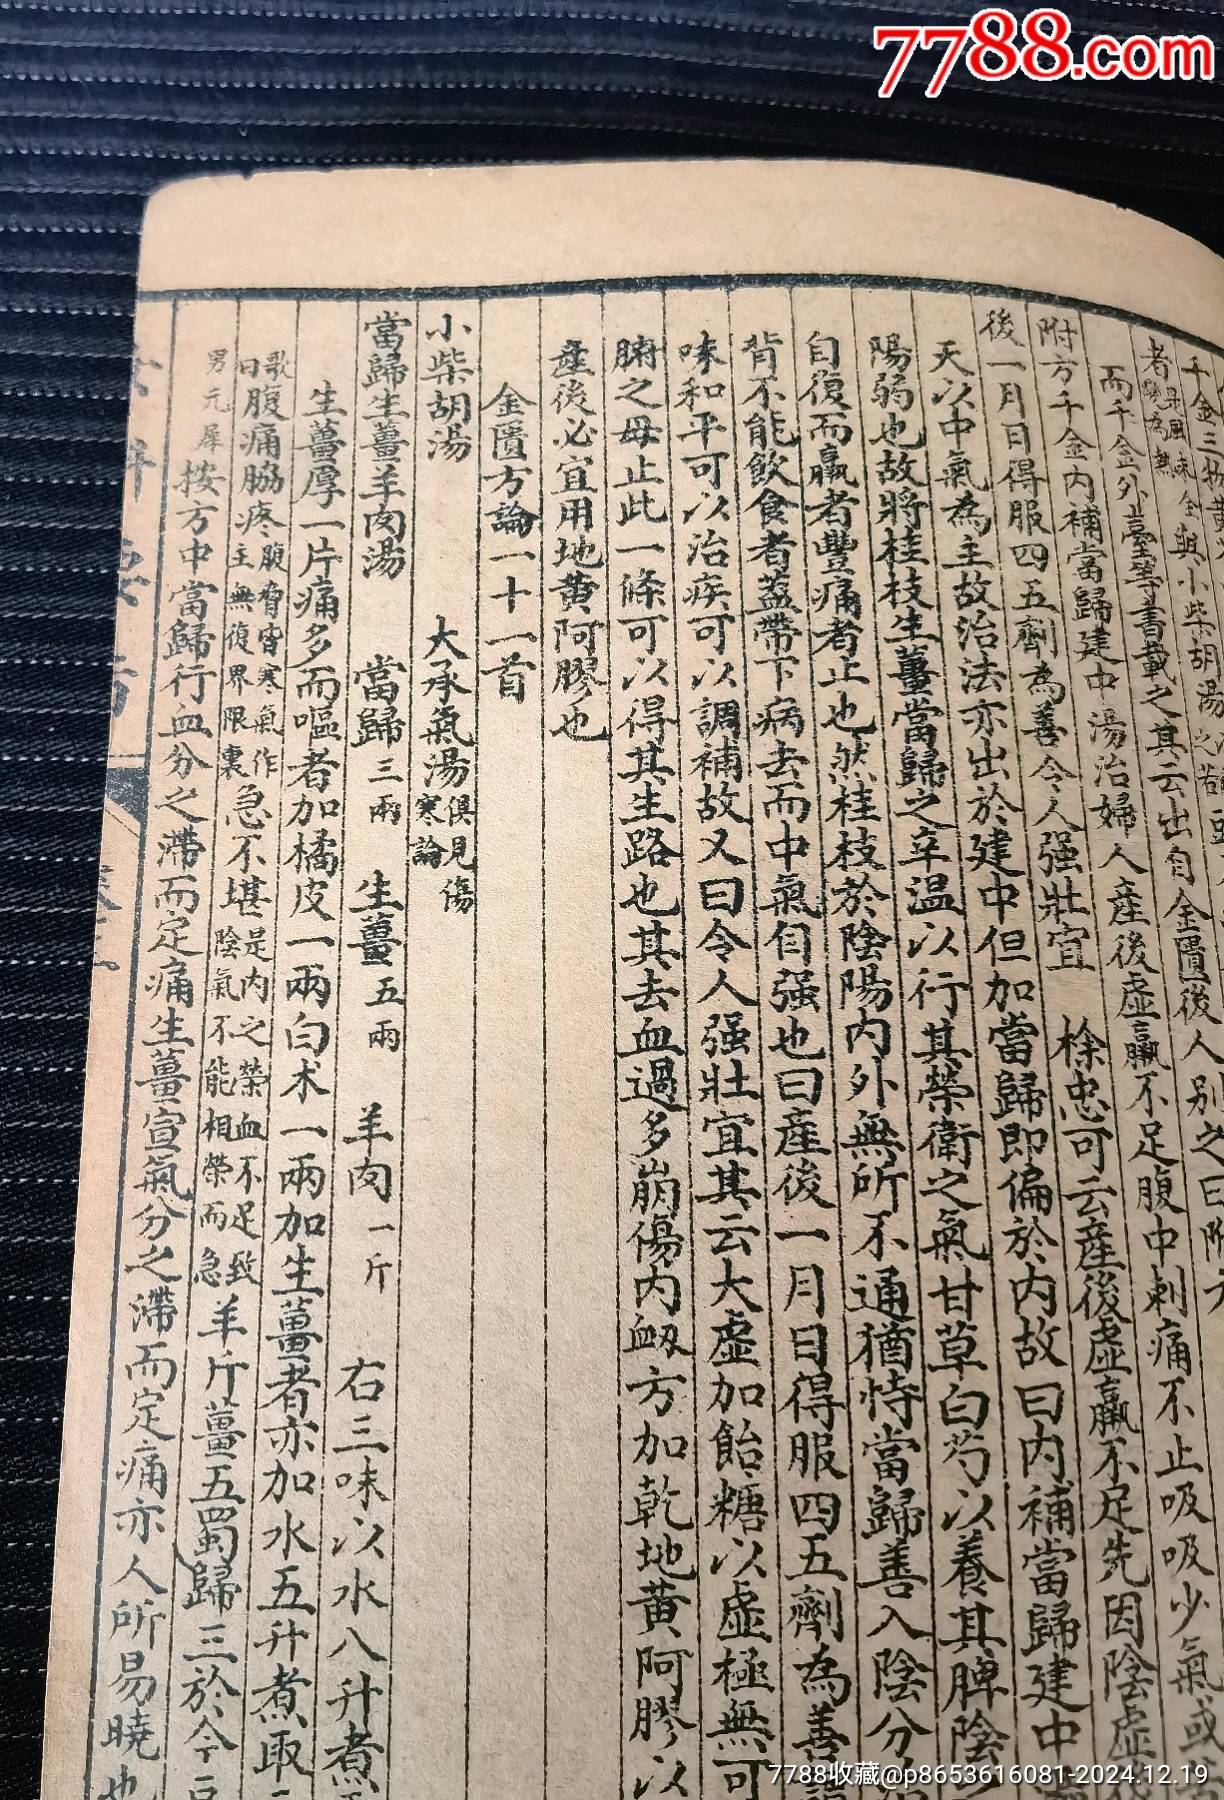 7788.com
千金三物黃
者是風味全與小柴胡湯之
而千金外臺等書載之其云出自金匱後人別之曰附方
附方千金內補當歸建中湯治婦人產後虛羸不足腹中刺痛不止吸吸少氣或苦
後一月日得服四五劑為善令人强壯宜　徐忠可云產後虛羸不足先因陰虛
天以中氣為主故治法亦出於建中但加當歸即偏於內故曰內補當歸建中
陽弱也故將桂枝生薑當歸之辛温以行其榮衛之氣甘草白芍以養其脾陰
自復而羸者豐痛者止也然桂枝於陰陽內外無所不通猶恃當歸善入陰分
背不能飲食者蓋帶下病去而中氣自强也曰產後一月日得服四五劑為善
味和平可以治疾可以調補故又曰令人强壯宜其云大虛加飴糖以虛極無可
腑之母止此一條可以得其生路也其去血過多崩傷內衂方加乾地黃阿膠以
產後必宜用地黃阿膠也
金匱方論一十一首
小柴胡湯　大承氣湯俱見傷寒論
當歸生薑羊肉湯　當歸三兩　生薑五兩　羊肉一斤　右三味以水八升煮
生薑厚一片痛多而嘔者加橘皮一兩白术一兩加生薑者亦加水五升煮取
歌曰腹痛脇疼腹脅皆寒氣作主無復界限裏急不堪是內之榮血不足致陰氣不能相榮而急羊斤薑五蜀歸三於今
男元犀按方中當歸行血分之滯而定痛生薑宣氣分之滯而定痛亦人所易曉也
7788收藏@p8653616081-2024.12.19